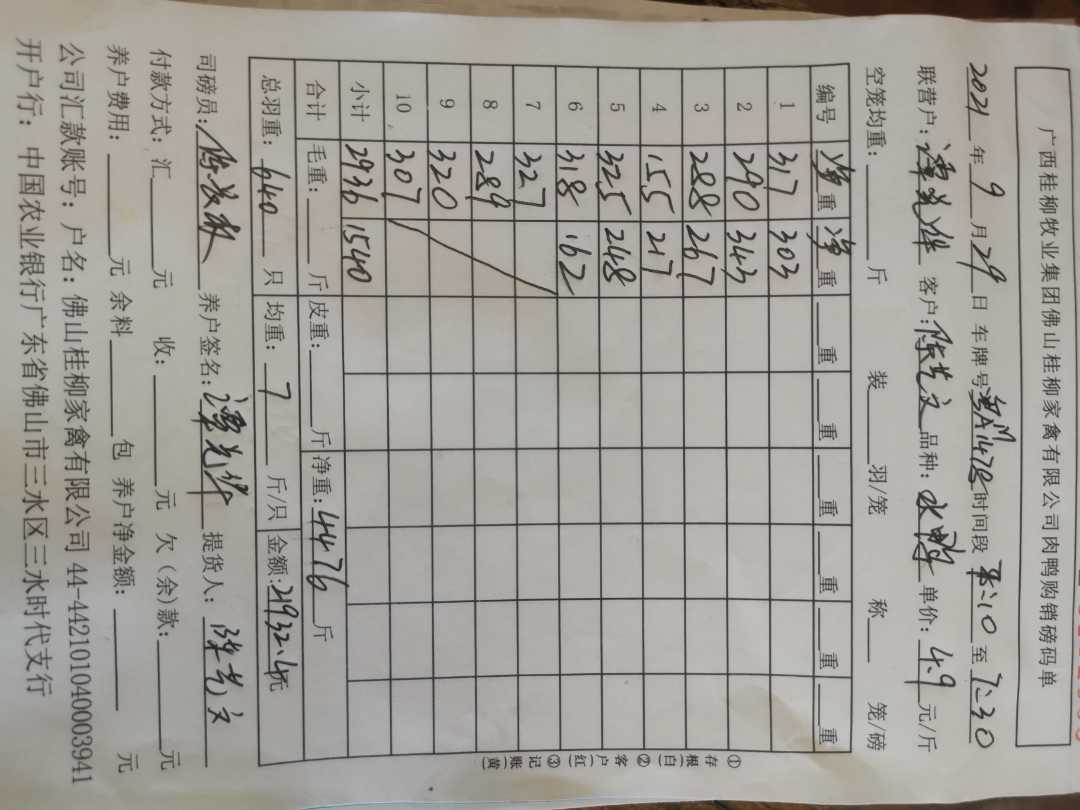 广西桂柳牧业集团佛山桂柳家禽有限公司肉鸭购销磅码单
2021年9月29日 车牌号 时间段 至7:30
联营户: 客户:陈芝文 品种:水鸭 单价:4.9元/斤
空笼均重: 斤 装 羽/笼 称 笼/磅
编号 净重 净重 重 重 重 重 重 重
1 317 303
2 290 343
3 288 267
4 155 217
5 325 248
6 318 162
7 327
8 289
9 320
10 307
小计 2936 1540
合计 毛重: 斤 皮重: 斤 净重:4476斤
总羽重:640只 均重:7斤/只 金额:21932.4元
司磅员: 养户签名: 提货人:
付款方式:汇 元 收: 元 欠(余)款: 元
养户费用: 元 余料 包 养户净金额: 元
公司汇款账号:户名:佛山桂柳家禽有限公司 44-421010400003941
开户行:中国农业银行广东省佛山市三水区三水时代支行
①存根(白) ②客户(红) ③记账(黄)